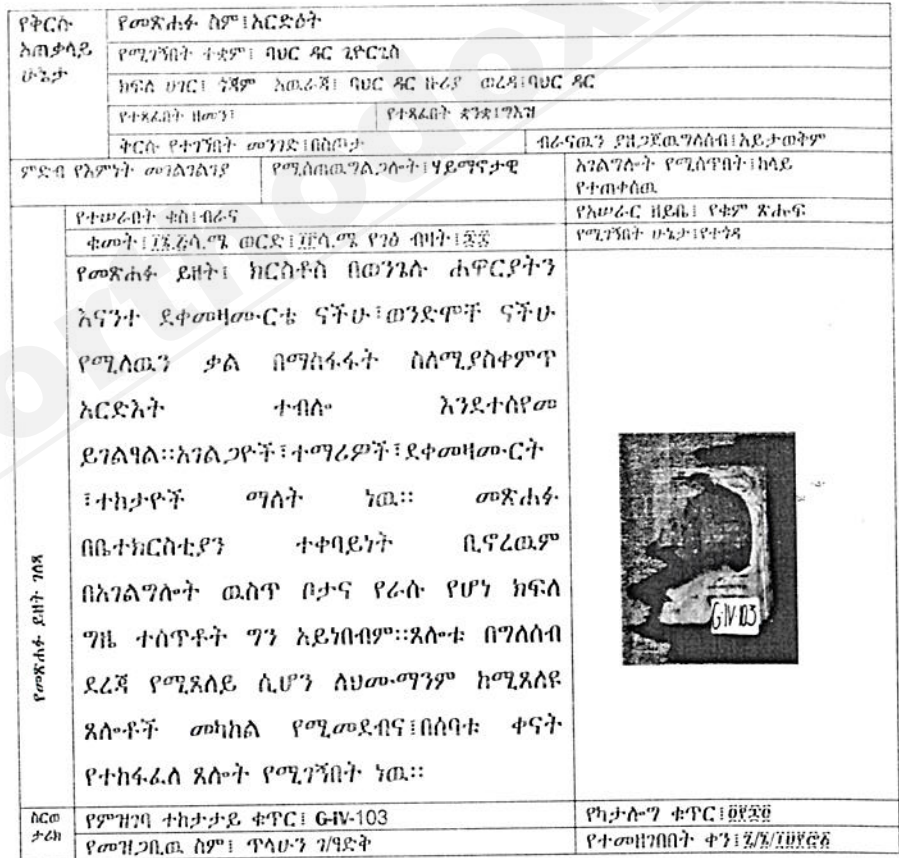 የቅርሱ አጠቃላይ ሁኔታ
የመጽሐፉ ስም፤አርድዕት
የሚገኝበት ተቋም፤ ባህር ዳር ጊዮርጊስ
ክፍለ ሀገር፤ ጎጃም አዉራጃ፤ ባህር ዳር ዙሪያ ወረዳ፤ባህር ዳር
የተጻፈበት ዘመን፤ የተጻፈበት ቋንቋ፤ግእዝ
ቅርሱ የተገኘበት መንገድ፤በስጦታ ብራናዉን ያዘጋጀዉግለሰብ፤አይታወቅም
ምድብ የእምነት መገልገያ
የሚሰጠዉግልጋሎት፤ሃይማኖታዊ
አገልግሎት የሚሰጥበት፤ከላይ የተጠቀሰዉ
የተሠራበት ቁስ፤ብራና
የአሠራር ዘይቤ፤ የቁም ጽሑፍ
ቁመት፤ ወርድ፤ የገፅ ብዛት፤
የሚገኝበት ሁኔታ፤የተጎዳ
የመጽሐፉ ይዘት ገለጻ
የመጽሐፉ ይዘት፤ ክርስቶስ በወንጌሉ ሐዋርያትን
እናንተ ደቀመዛሙርቴ ናችሁ፤ወንድሞቸ ናችሁ
የሚለዉን ቃል በማስፋፋት ስለሚያስቀምጥ
አርድእት ተብሎ እንደተሰየመ
ይገልፃል።አገልጋዮች፣ተማሪዎች፣ደቀመዛሙርት
፣ተከታዮች ማለት ነዉ። መጽሐፉ
በቤተክርስቲያን ተቀባይነት ቢኖረዉም
በአገልግሎት ዉስጥ ቦታና የራሱ የሆነ ክፍለ
ግዜ ተሰጥቶት ግን አይነበብም።ጸሎቱ በግለሰብ
ደረጃ የሚጸለይ ሲሆን ለህሙማንም ከሚጸለዩ
ጸሎቶች መካከል የሚመደብና፤በሰባቱ ቀናት
የተከፋፈለ ጸሎት የሚገኝበት ነዉ።
G-IV-103
ስርወ ታሪክ
የምዝገባ ተከታታይ ቁጥር፤ G-IV-103
የካታሎግ ቁጥር፤
የመዝጋቢዉ ስም፤ ጥላሁን ገ/ፃድቅ
የተመዘገበበት ቀን፤
orthodox